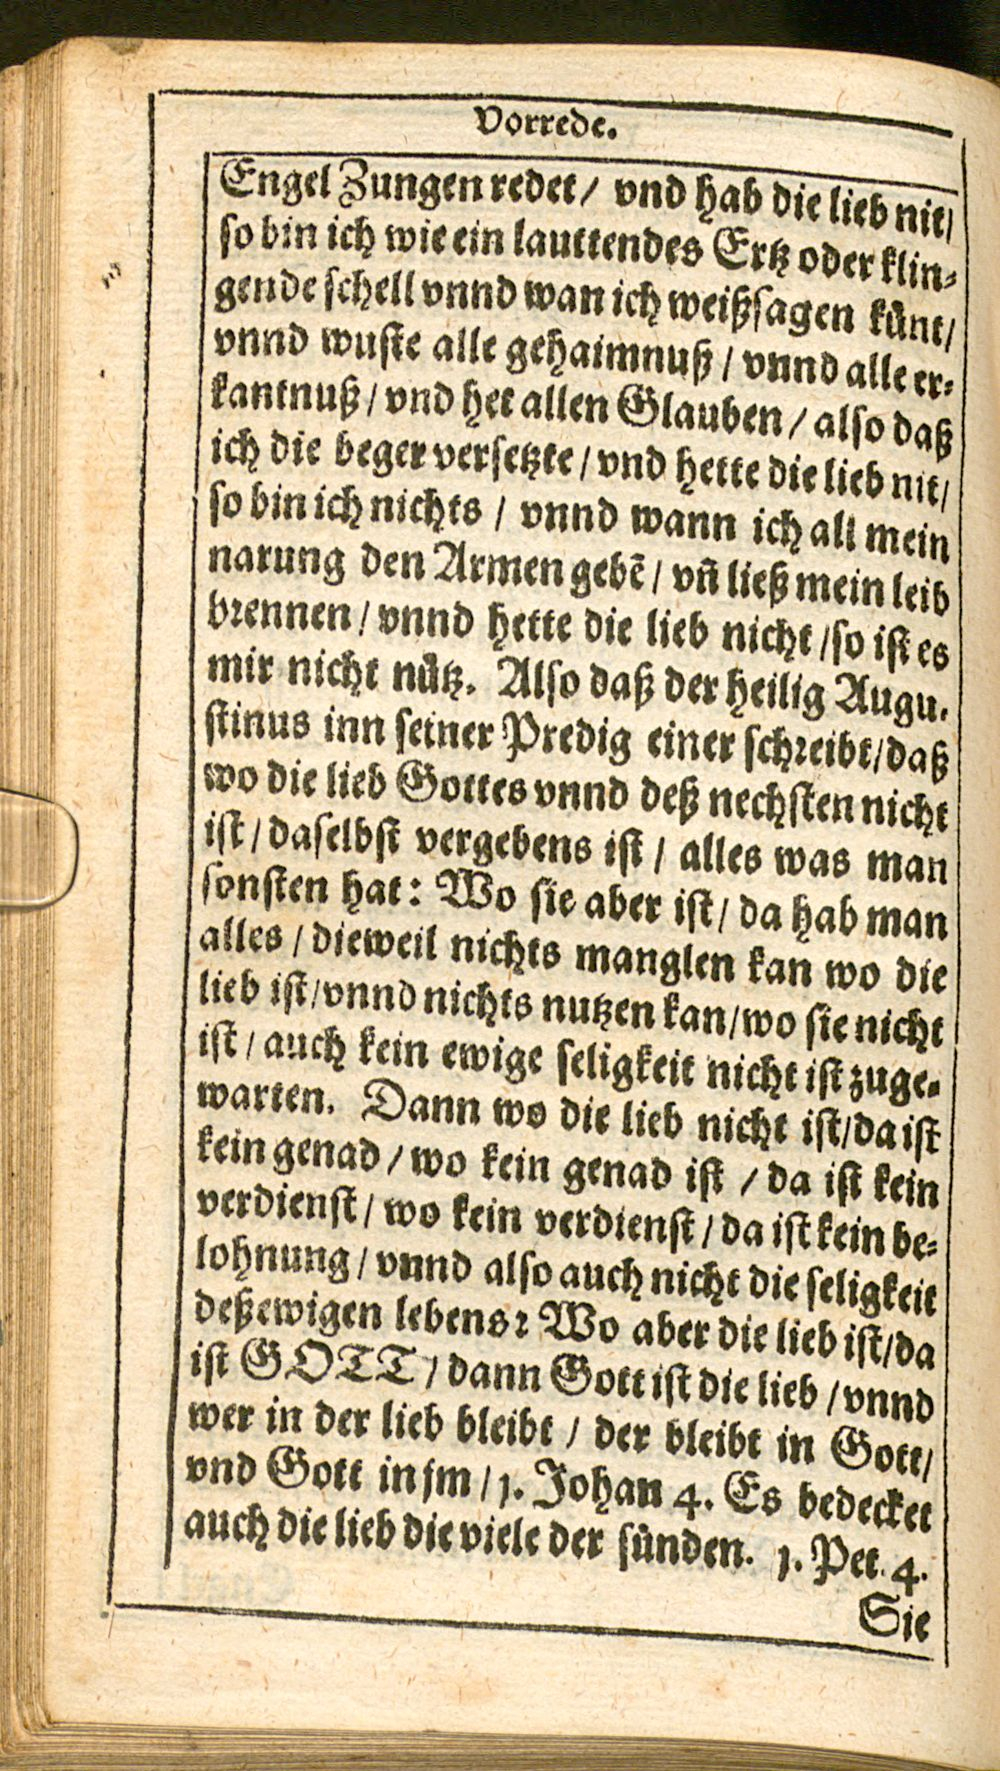 Vorrede.
Engel Zungen redet / vnd hab die lieb nit /
so bin ich wie ein lauttendes Ertz oder klin⸗
gende schell vnnd wan ich weißsagen künt /
vnnd wuste alle gehaimnuß / vnnd alle er⸗
kantnuß / vnd het allen Glauben / also daß
ich die beger versetzte / vnd hette die lieb nit /
so bin ich nichts / vnnd wann ich all mein
narung den Armen gebẽ / vñ ließ mein leib
brennen / vnnd hette die lieb nicht / so ist es
mir nicht nütz. Also daß der heilig Augu.
stinus inn seiner Predig einer schreibt / daß
wo die lieb Gottes vnnd deß nechsten nicht
ist / daselbst vergebens ist / alles was man
sonsten hat: Wo sie aber ist / da hab man
alles / dieweil nichts manglen kan wo die
lieb ist / vnnd nichts nutzen kan / wo sie nicht
ist / auch kein ewige seligkeit nicht ist zuge⸗
warten. Dann wo die lieb nicht ist / da ist
kein genad / wo kein genad ist / da ist kein
verdienst / wo kein verdienst / da ist kein be⸗
lohnung / vnnd also auch nicht die seligkeit
deß ewigen lebens: Wo aber die lieb ist / da
ist GOTT / dann Gott ist die lieb / vnnd
wer in der lieb bleibt / der bleibt in Gott /
vnd Gott in jm / 1. Johan 4. Es bedecket
auch die lieb die viele der sünden. 1. Pet. 4.
Sie